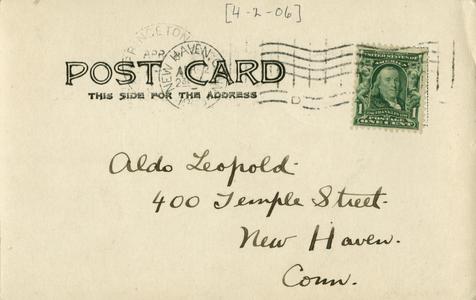 [4-2-06]
PRINCETON
APR
NEW HAVEN
POST CARD
THIS SIDE FOR THE ADDRESS
D
UNITED STATES OF AMERICA
FRANKLIN
1 POSTAGE 1
ONE CENT
Aldo Leopold.
400 Temple Street.
New Haven.
Conn.